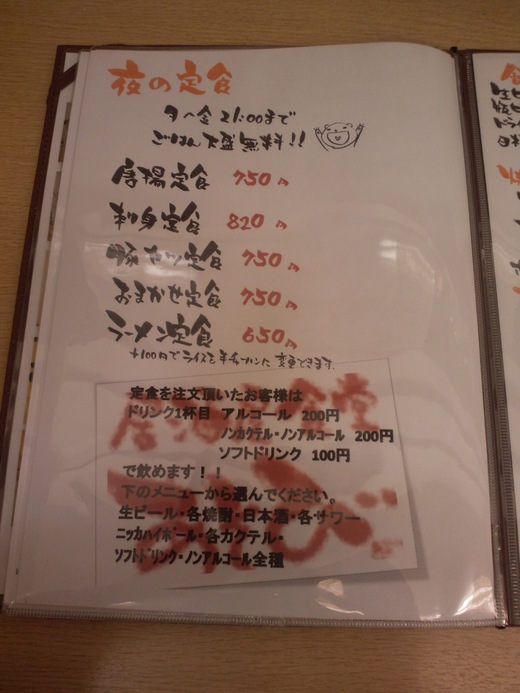 夜の定食
月〜金 21:00まで
ごはん大盛無料!!
唐揚定食 750円
刺身定食 820円
豚カツ定食 750円
おまかせ定食 750円
ラーメン定食 650円
+100円でライスを半チャーハンに変更できます。
定食を注文頂いたお客様は
ドリンク1杯目 アルコール 200円
ノンカクテル・ノンアルコール 200円
ソフトドリンク 100円
で飲めます!!
下のメニューから選んでください。
生ビール・各焼酎・日本酒・各サワー
ニッカハイボール・各カクテル・
ソフトドリンク・ノンアルコール全種